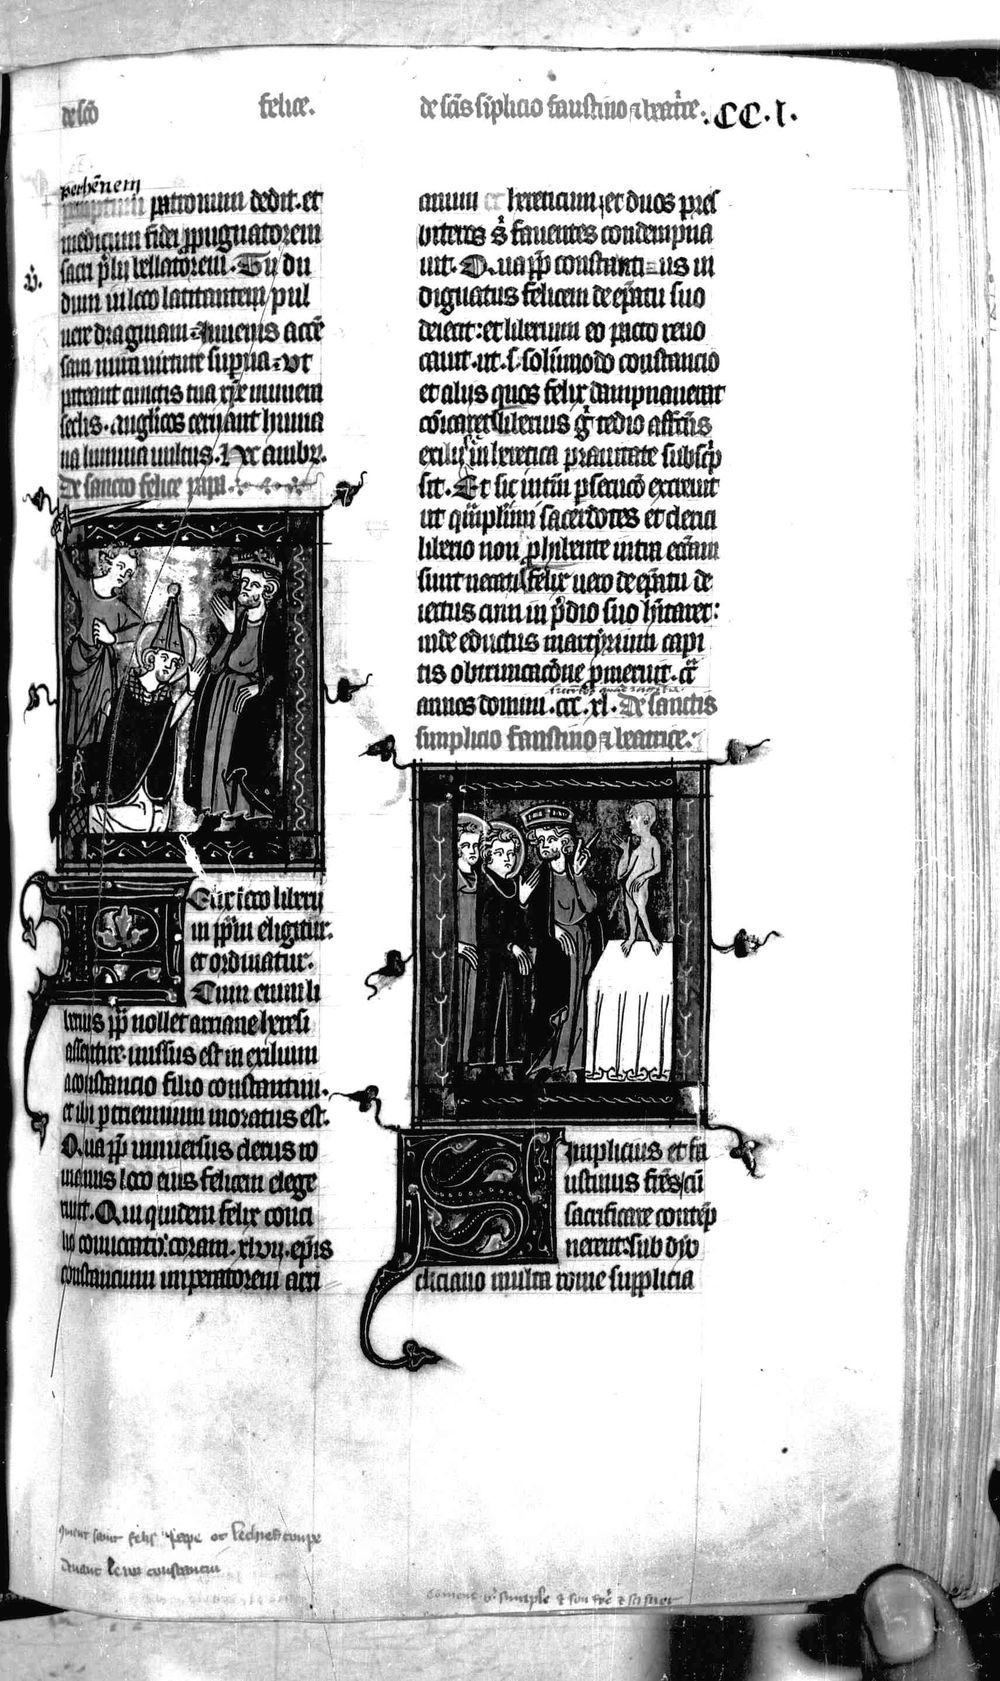 de scō felice. de scīs simplicio faustino ⁊ beatrice. .CC.I.
perhēnem
patronum dedit. et
medicum fidei ꝓpugnatorem
sacri p̄lii bellatorem. Tu du
dum in loco latitantem pul
uere dragmam. Inuenis accē
sam mira uirtute supna. ut
pateant cunctis tua xp̄e munera
seclis. anglicos cernant humana
lumina uultus. Hec ambr.
De sancto felice papa.
Elix loco liberii
in pp̄am eligitur.
et ordinatur.
Cum enim li
berius pp̄ nollet arriane heresi
assentire. missus est in exilium
a constancio filio constantini.
et ibi p triennium moratus est.
Qua ꝓp uniuersus clerus ro
manus loco eius felicem elege
runt. Qui quidem felix conci
lio conuocato. coram. xlviij. ep̄is
constancium imperatorem arri
anum et hereticum. et duos pres
biteros s̄ fauentes condempna
uit. Qua ꝓp constantius in
dignatus felicem de ep̄atu suo
deiecit: et liberium eo pacto reuo
cauit. ut. s. solūmodo constancio
et aliis quos felix dampnauerat
cōicaret. liberius g̊ tedio affectus
exilii in heretica prauitate subscp̄
sit. Et sic intm̄ ꝑsecucō excreuit
ut quāplimi sacerdotes et clerici
liberio non ꝓhibente intra ecc̄iam
sunt necati. felix uero de ep̄atu de
iectus cum in p̄dio suo hitaret:
inde eductus martyrium capi
tis obtruncacōne ꝓmeruit. c̄
annos domini .ccc.xl. De sanctis
simplicio faustino ⁊ beatrice.
Implicius et fa
ustinus frēs cū
sacrificare contēp
nerent: sub dyo
cliciano multa rome supplicia
felix pape
deuant le roi constancin
coment simple ⁊ son frē ⁊ sa suer